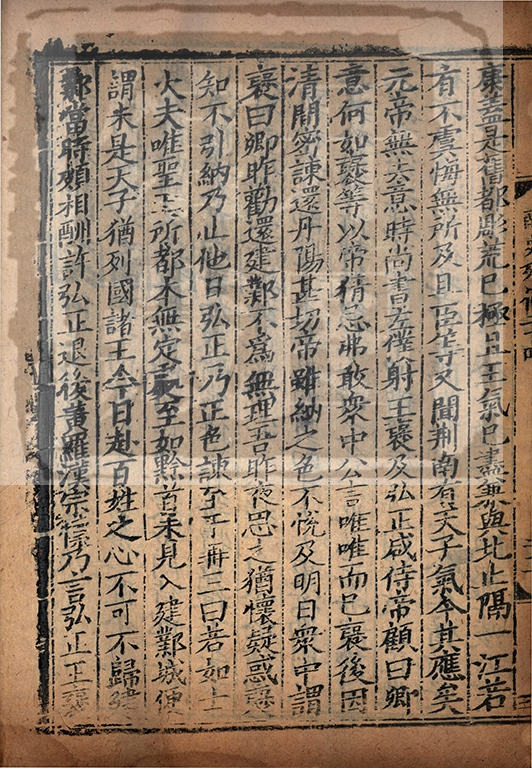 康蓋是舊都彫荒已極且王氣已盡無與北止隔一江若
有不虞悔無所及且臣等又聞荆南有天子氣今其應矣
元帝無去意時尚書左僕射王褒及弘正咸侍帝顧曰卿
意何如褒等以帝猜忌弗敢衆中公言唯唯而已褒後因
清閒密諫還丹陽甚切帝雖納之色不恱及明日衆中謂
褒曰卿昨勸還建鄴不爲無理吾昨夜思之猶懷疑惑褒
知不引納乃止他日弘正乃正色諫至于再三曰若如士
大夫唯聖王所都本無定處至如黔首未見入建鄴城便
謂未是天子猶列國諸王今日赴百姓之心不可不歸建
鄴當時頗相酬許弘正退後黄羅漢宗懔乃言弘正王褒